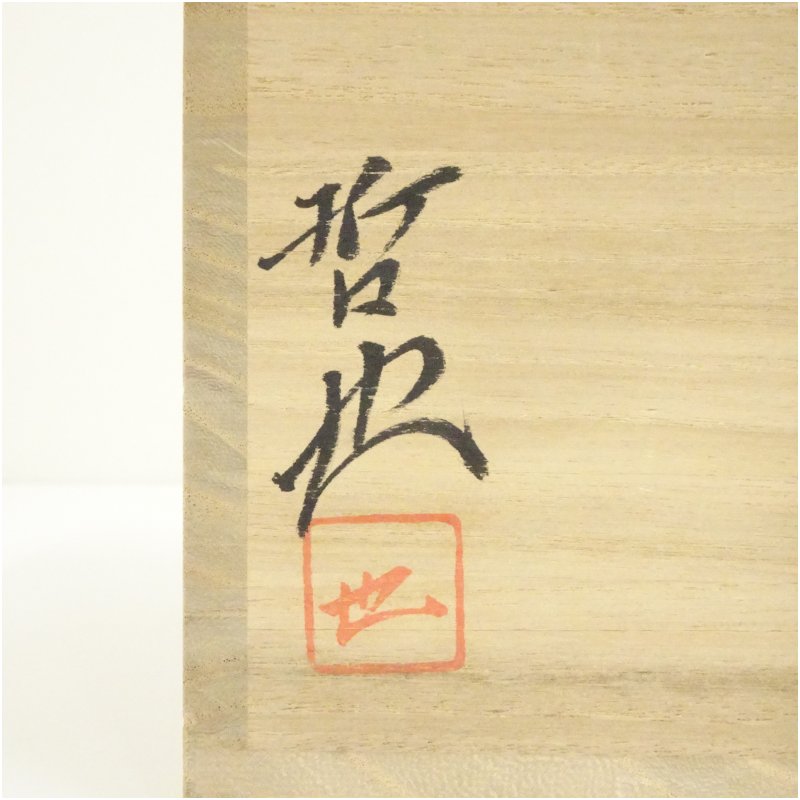 哲也
也